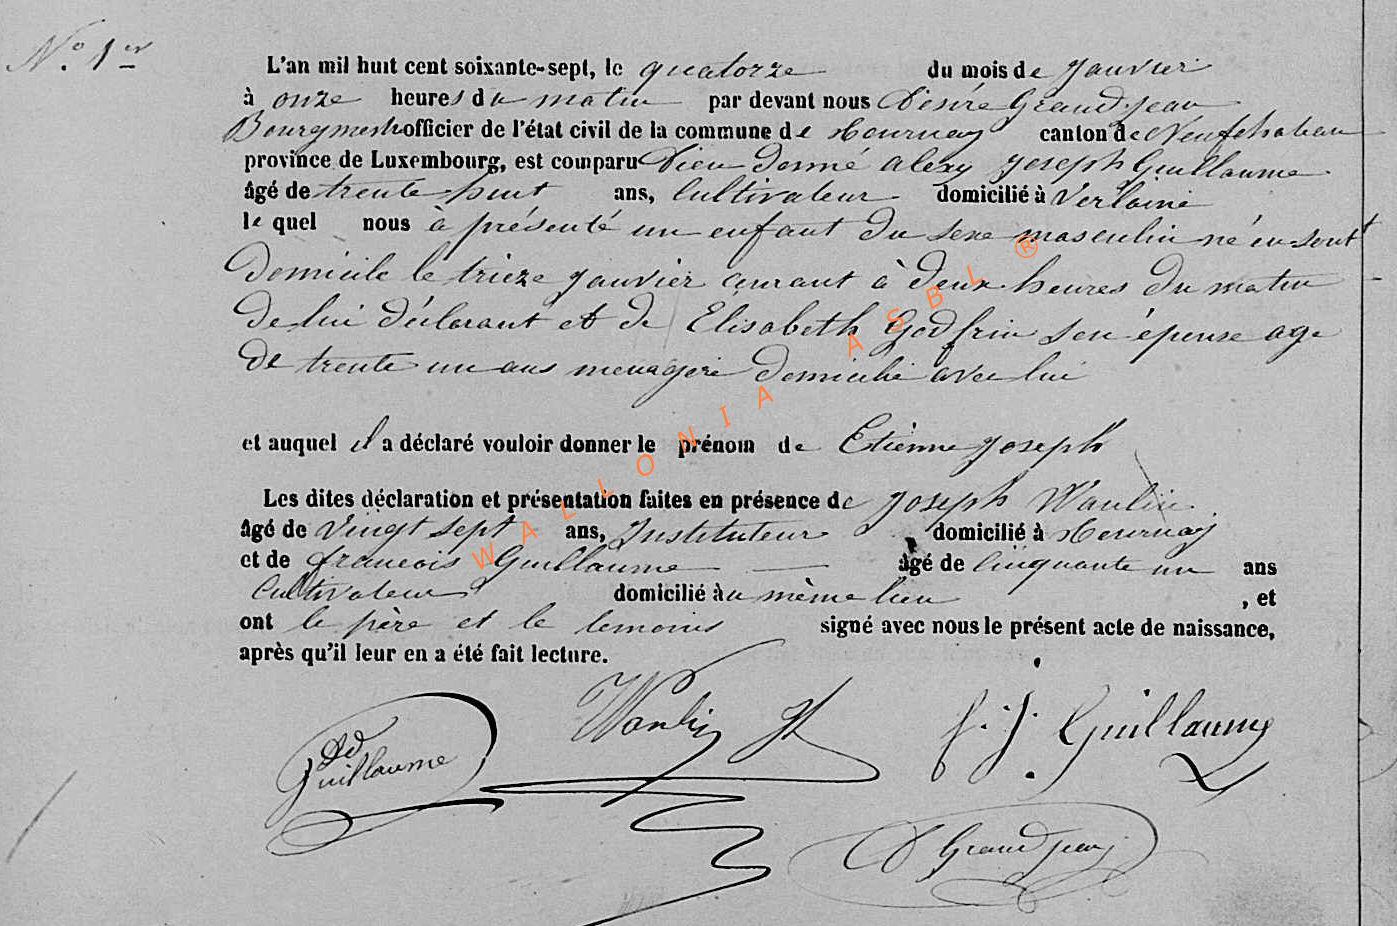 N.o 1er
L'an mil huit cent soixante-sept, le quatorze du mois de Janvier
à onze heures du matin par devant nous Désiré Grandjean
Bourgmestre officier de l'état civil de la commune de Tournay canton de Neufchateau
province de Luxembourg, est comparu Dieu donné alexy Joseph Guillaume
âgé de trente huit ans, Cultivateur domicilié à Verlaine
le quel nous à présenté un enfant du sexe masculin né en sont
domicile le trieze Janvier courant à deux heures du matin
de lui déclarant et de Elisabeth Godfrin son épouse age
de trente un ans menagère domicilié avec lui
et auquel il a déclaré vouloir donner le prénom de Etienne Joseph
Les dites déclaration et présentation faites en présence de Joseph Wanlin
âgé de vingt sept ans, Instituteur domicilié à Tournay
et de francois Guillaume âgé de cinquante un ans
Cultivateur domicilié àu même lieu , et
ont le père et le temoins signé avec nous le présent acte de naissance,
après qu'il leur en a été fait lecture.
Dd Guillaume
Wanlin
f. j. Guillaume
D Grandjean
WALLONIA ASBL ®